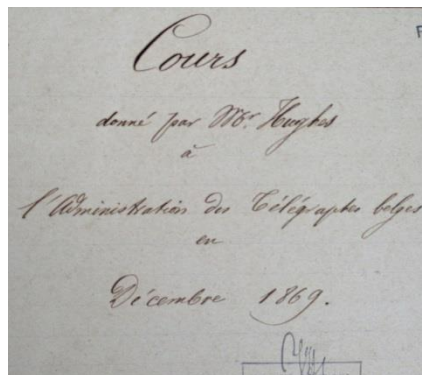 Cours
donné par Mr. Hughes
à
l'Administration des Télégraphes belges
en
Décembre 1869.